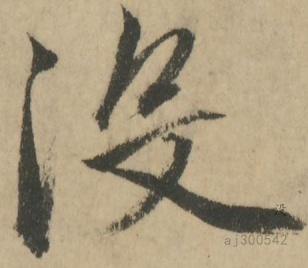 没
没
aj300542